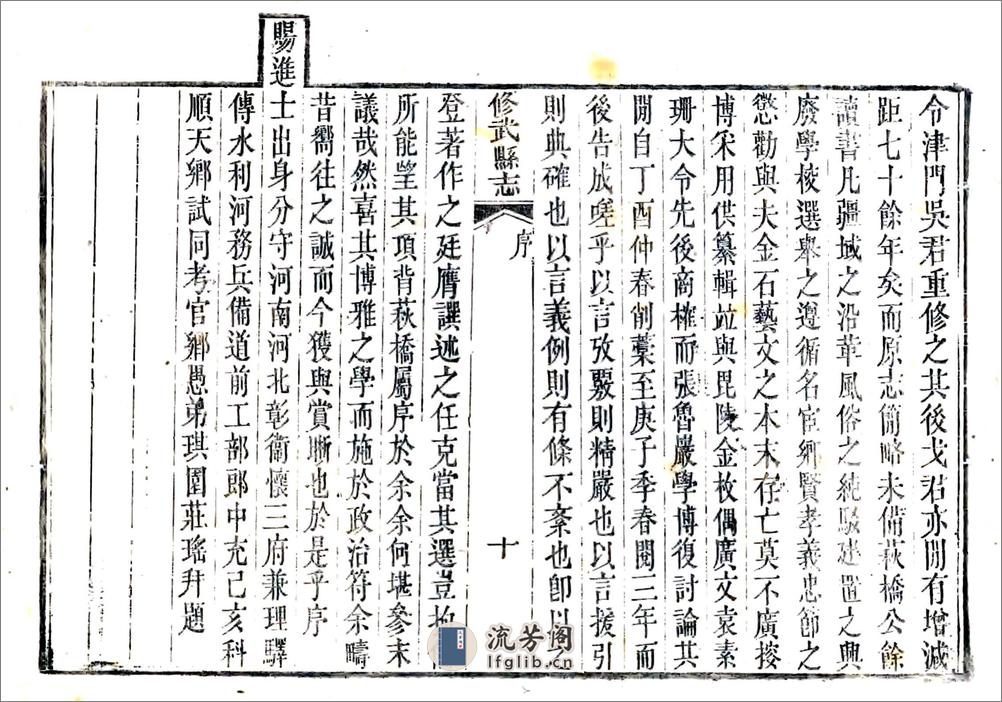 令津門吳君重修之其後戈君亦閒有增減
距七十餘年矣而原志簡略未備萩橋公餘
讀書凡疆域之沿革風俗之純駁建置之興
廢學校選舉之遵循名宦鄉賢孝義忠節之
懲勸與夫金石藝文之本末存亡莫不廣搜
博采用供纂輯竝與毘陵金枚偶廣文袁素
珊大令先後商榷而張魯巖學博復討論其
閒自丁酉仲春創藁至庚子季春閱三年而
後告成嗟乎以言攷覈則精嚴也以言援引
則典確也以言義例則有條不紊也卽以
修武縣志
序
十
登著作之廷膺譔述之任克當其選豈
所能望其項背萩橋屬序於余余何堪參末
議哉然喜其博雅之學而施於政治符余疇
昔嚮往之誠而今獲與賞晰也於是乎序
賜進士出身分守河南河北彰衞懷三府兼理驛
傳水利河務兵備道前工部郎中充己亥科
順天鄉試同考官鄉愚弟琪園莊瑤拜題
流芳閣
lfglib.cn